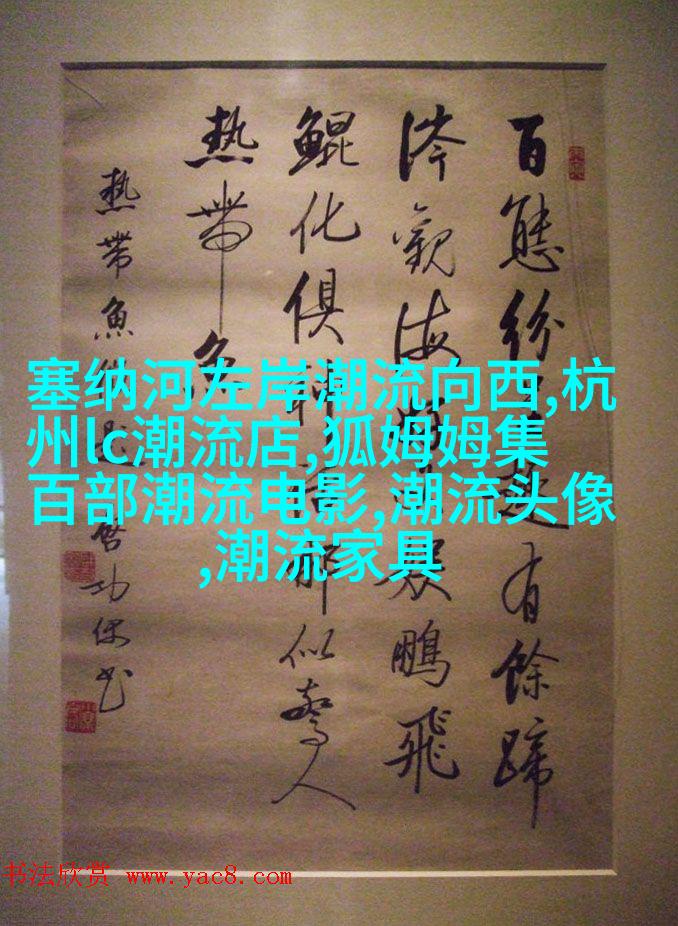 百態紛趣有餘蹄
涔觀海疑鵬飛
鯤化俱解似驚人
熱帶魚
熱帶魚題啓功
塞纳河左岸潮流向西,杭
州lc潮流店,狐姆姆集
百部潮流电影,潮流头像
,潮流家具
书法欣赏 www.yac8.com